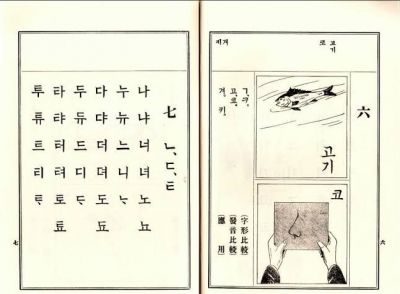 六
고기
코
(字形比較)
(發音比較)
(應用)
六
七 ㄴ,ㄷ,ㅌ
나 냐 너 녀 노 뇨
누 뉴 느 니 ᄂᆞ
다 댜 더 뎌 도 됴
두 듀 드 디 ᄃᆞ
타 탸 터 텨 토 툐
투 튜 트 티 ᄐᆞ
七